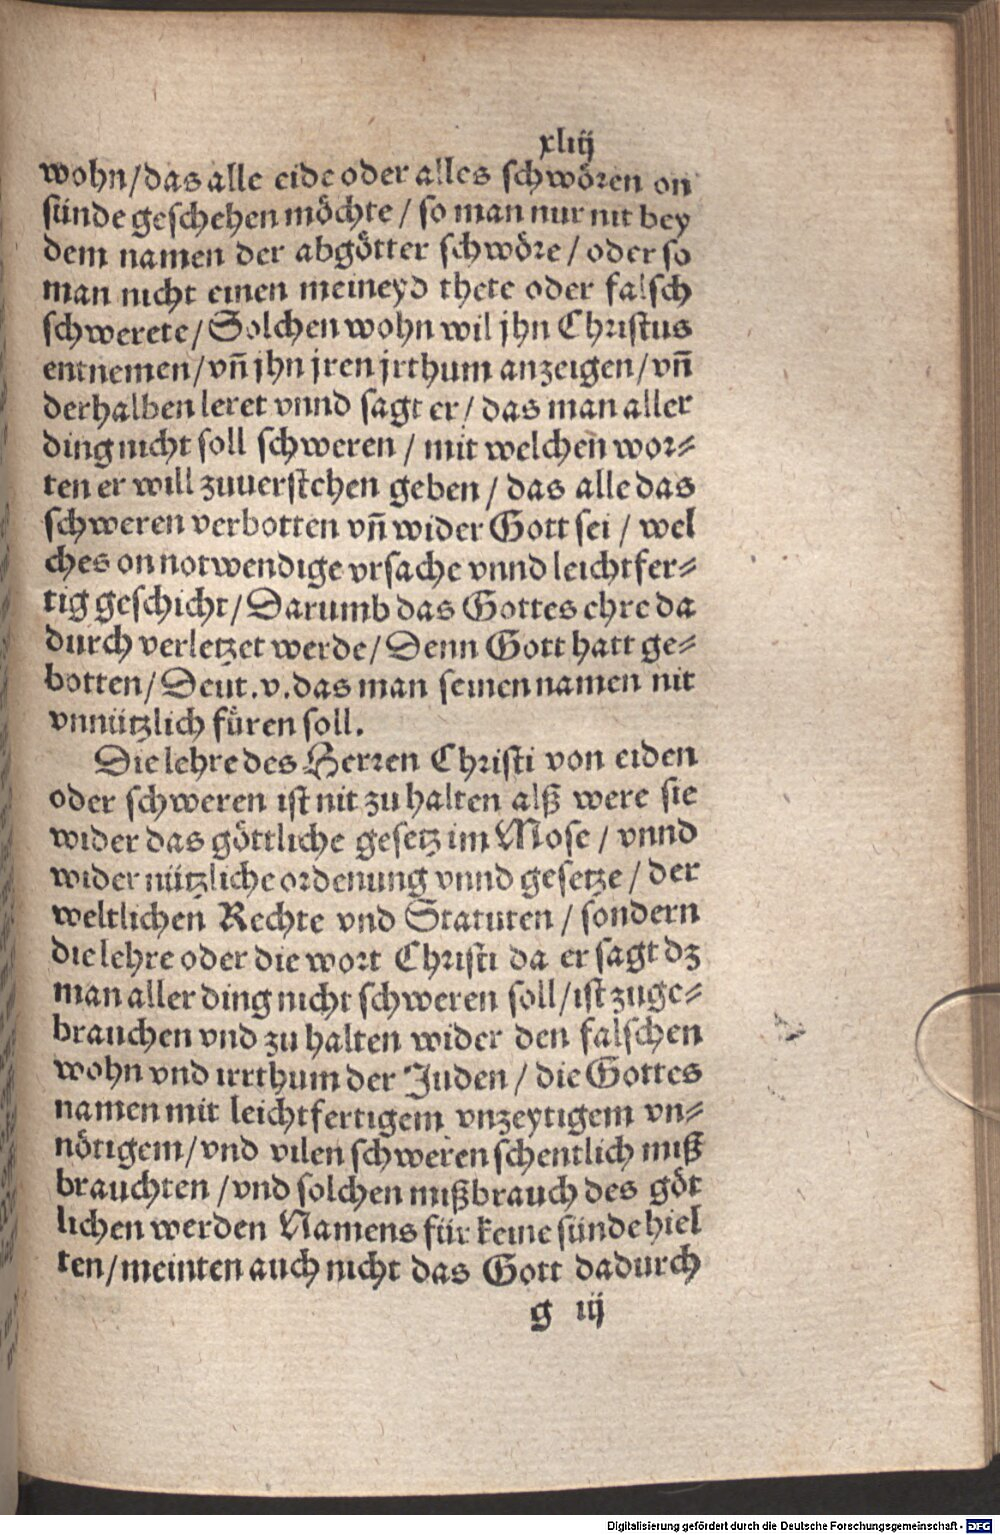 xliij
wohn/das alle eide oder alles schwören on
sünde geschehen möchte / so man nur nit bey
dem namen der abgötter schwöre / oder so
man nicht einen meineyd thete oder falsch
schwerete/ Solchen wohn wil jhn Christus
entnemen/ vñ jhn jren jrthum anzeigen/ vñ
derhalben leret vnnd sagt er/ das man aller
ding nicht soll schweren / mit welchen wor⸗
ten er will zuuerstehen geben / das alle das
schweren verbotten vñ wider Gott sei / wel
ches on notwendige vrsache vnnd leichtfer⸗
tig geschicht/ Darumb das Gottes ehre da
durch verletzet werde/ Denn Gott hatt ge⸗
botten/ Deut. v. das man seinen namen nit
vnnützlich füren soll.
Die lehre des Herren Christi von eiden
oder schweren ist nit zu halten alß were sie
wider das göttliche gesetz im Mose / vnnd
wider nützliche ordenung vnnd gesetze / der
weltlichen Rechte vnd Statuten / sondern
die lehre oder die wort Christi da er sagt dz
man aller ding nicht schweren soll/ ist zuge⸗
brauchen vnd zu halten wider den falschen
wohn vnd irrthum der Juden / die Gottes
namen mit leichtfertigem vnzeytigem vn⸗
nötigem/ vnd vilen schweren schentlich miß
brauchten / vnd solchen mißbrauch des göt
lichen werden Namens für keine sünde hiel
ten/ meinten auch nicht das Gott dadurch
g iij
Digitalisierung gefördert durch die Deutsche Forschungsgemeinschaft - DFG